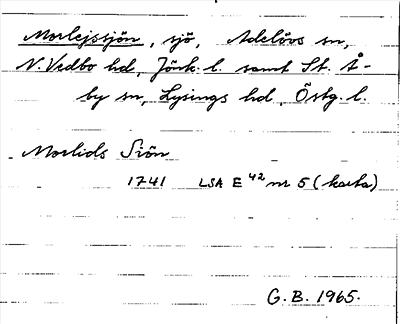 Morlejssjön, sjö, Adelövs sn,
N. Vedbo hd, Jönk. l. samt St. Å-
by sn, Lysings hd, Östg. l.
Morlids Siön
1741 LSA E 42 nr 5 (karta)
G. B. 1965.